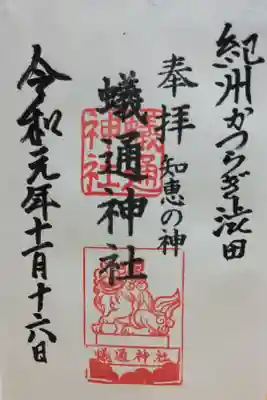 紀州かつらぎ澁田
奉拝 知恵の神
蟻通神社
蟻通神社
令和元年十一月十六日
蟻通神社